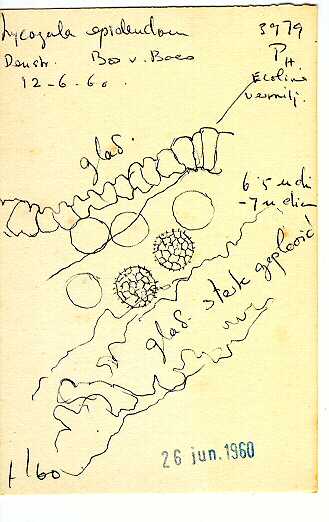 Lycogala epidendrum
3979
Demstr. Bos v. Baes
P
H.
12-6-60.
Ecoline
vermilj.
glad.
6.5 u di
-7 u diam
glad. sterk geplooid
H/60
26 jun. 1960